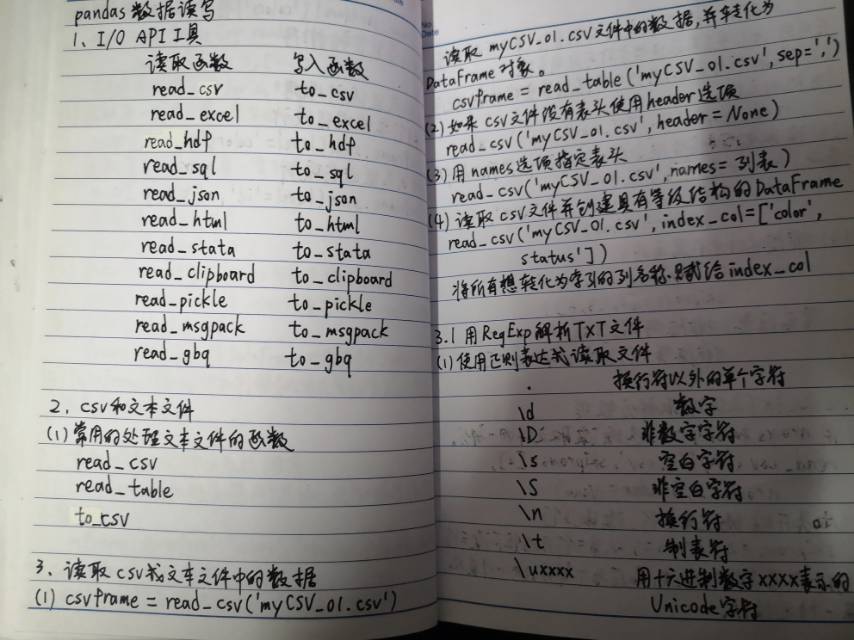 pandas数据读写
1、I/O API工具
读取函数 写入函数
read_csv to_csv
read_excel to_excel
read_hdf to_hdf
read_sql to_sql
read_json to_json
read_html to_html
read_stata to_stata
read_clipboard to_clipboard
read_pickle to_pickle
read_msgpack to_msgpack
read_gbq to_gbq
2、csv和文本文件
(1)常用的处理文本文件的函数
read_csv
read_table
to_csv
3、读取csv或文本文件中的数据
(1) csvframe = read_csv('myCSV_01.csv')
No
Date
读取 myCSV_01.csv文件中的数据,并转化为
DataFrame对象。
csvframe = read_table('myCSV_01.csv', sep=',')
(2)如果csv文件没有表头使用header选项
read_csv('myCSV_01.csv', header = None)
(3)用names选项指定表头
read_csv('myCSV_01.csv', names= 列表)
(4)读取csv文件并创建具有等级结构的DataFrame
read_csv('myCSV_01.csv', index_col=['color',
status'])
将所有想转化为字列的列名称.赋给index_col
3.1 用RegExp解析TXT文件
(1)使用正则表达式读取文件
. 换行符以外的单个字符
\d 数字
\D 非数字字符
\s 空白字符
\S 非空白字符
\n 换行符
\t 制表符
\uxxxx 用十六进制数字xxxx表示的
Unicode字符